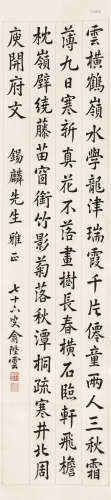 雲橫鶴嶺水學龍津瑞霞千片僊童兩人三秋霜
薄九日寒新真花不落畫樹長春橫石臨軒飛檐
枕嶺壁繞藤苗窗銜竹影菊落秋潭桐疏寒井北周
庾開府文
錫麟先生雅正
七十六叟俞陛雲